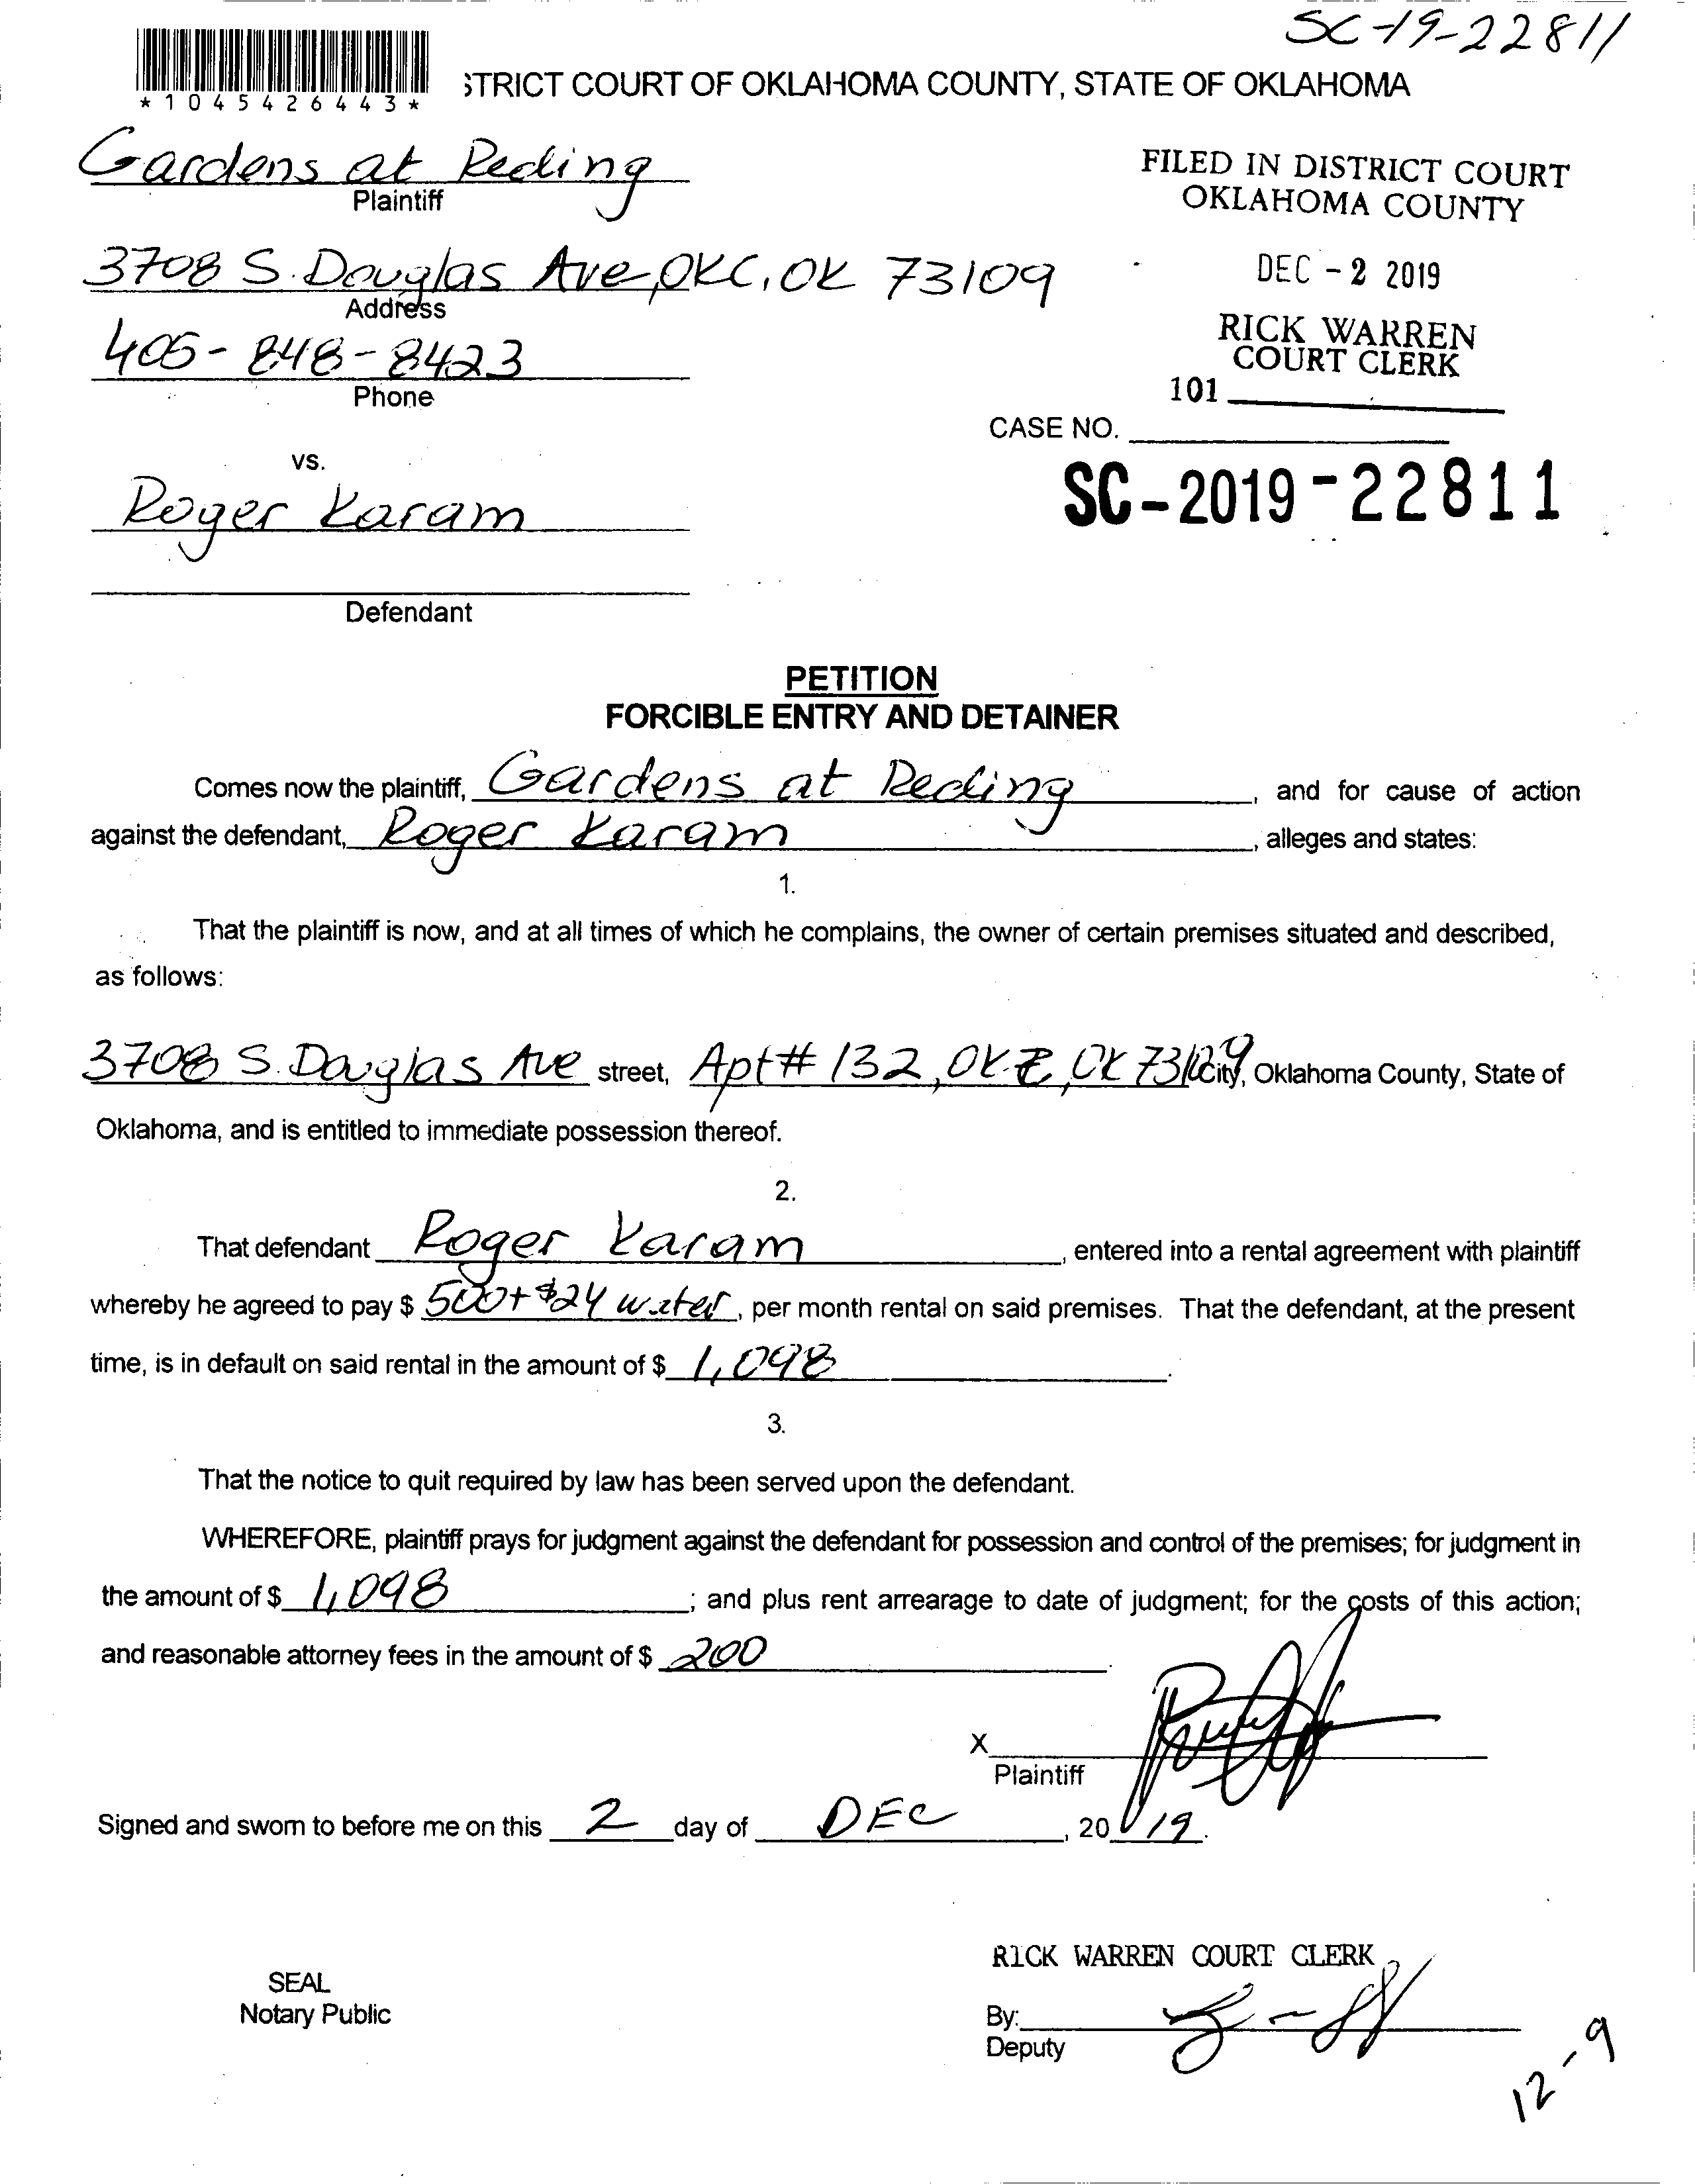 SC-19-22811
*1045426443*
STRICT COURT OF OKLAHOMA COUNTY, STATE OF OKLAHOMA
Gardens at Reding
Plaintiff
FILED IN DISTRICT COURT
OKLAHOMA COUNTY
3708 S. Douglas Ave, OKC, OK 73109
Address
DEC - 2 2019
405-848-8423
Phone
RICK WARREN
COURT CLERK
101
CASE NO.
vs.
SC-2019-22811
Roger Karam
Defendant
PETITION
FORCIBLE ENTRY AND DETAINER
Comes now the plaintiff, Gardens at Reding, and for cause of action
against the defendant, Roger Karam, alleges and states:
1.
That the plaintiff is now, and at all times of which he complains, the owner of certain premises situated and described,
as follows:
3708 S. Douglas Ave street, Apt# 132, OKC, OK 73109 City, Oklahoma County, State of
Oklahoma, and is entitled to immediate possession thereof.
2.
That defendant Roger Karam, entered into a rental agreement with plaintiff
whereby he agreed to pay $ 500+$24 water, per month rental on said premises. That the defendant, at the present
time, is in default on said rental in the amount of $ 1,098.
3.
That the notice to quit required by law has been served upon the defendant.
WHEREFORE, plaintiff prays for judgment against the defendant for possession and control of the premises; for judgment in
the amount of $ 1,098; and plus rent arrearage to date of judgment; for the costs of this action;
and reasonable attorney fees in the amount of $ 200.
X
Plaintiff
Signed and sworn to before me on this 2 day of DEC, 2019.
RICK WARREN COURT CLERK
SEAL
Notary Public
By:
Deputy
12-9